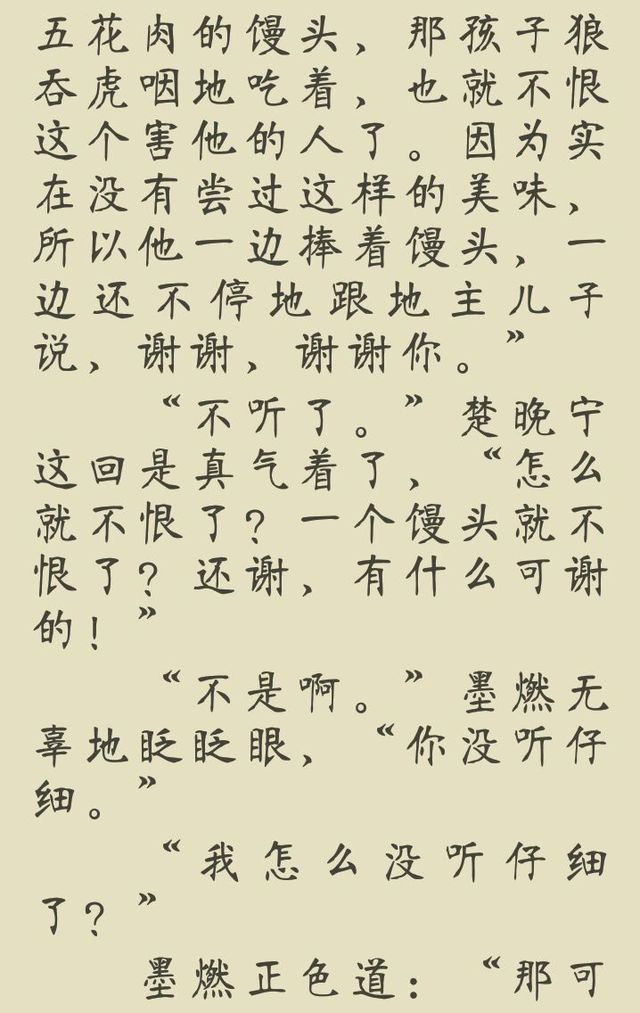 五花肉的馒头，那孩子狼
吞虎咽地吃着，也就不恨
这个害他的人了。因为实
在没有尝过这样的美味，
所以他一边捧着馒头，一
边还不停地跟地主儿子
说，谢谢，谢谢你。”
“不听了。”楚晚宁
这回是真气着了，“怎么
就不恨了？一个馒头就不
恨了？还谢，有什么可谢
的！”
“不是啊。”墨燃无
辜地眨眨眼，“你没听仔
细。”
“我怎么没听仔细
了？”
墨燃正色道：“那可